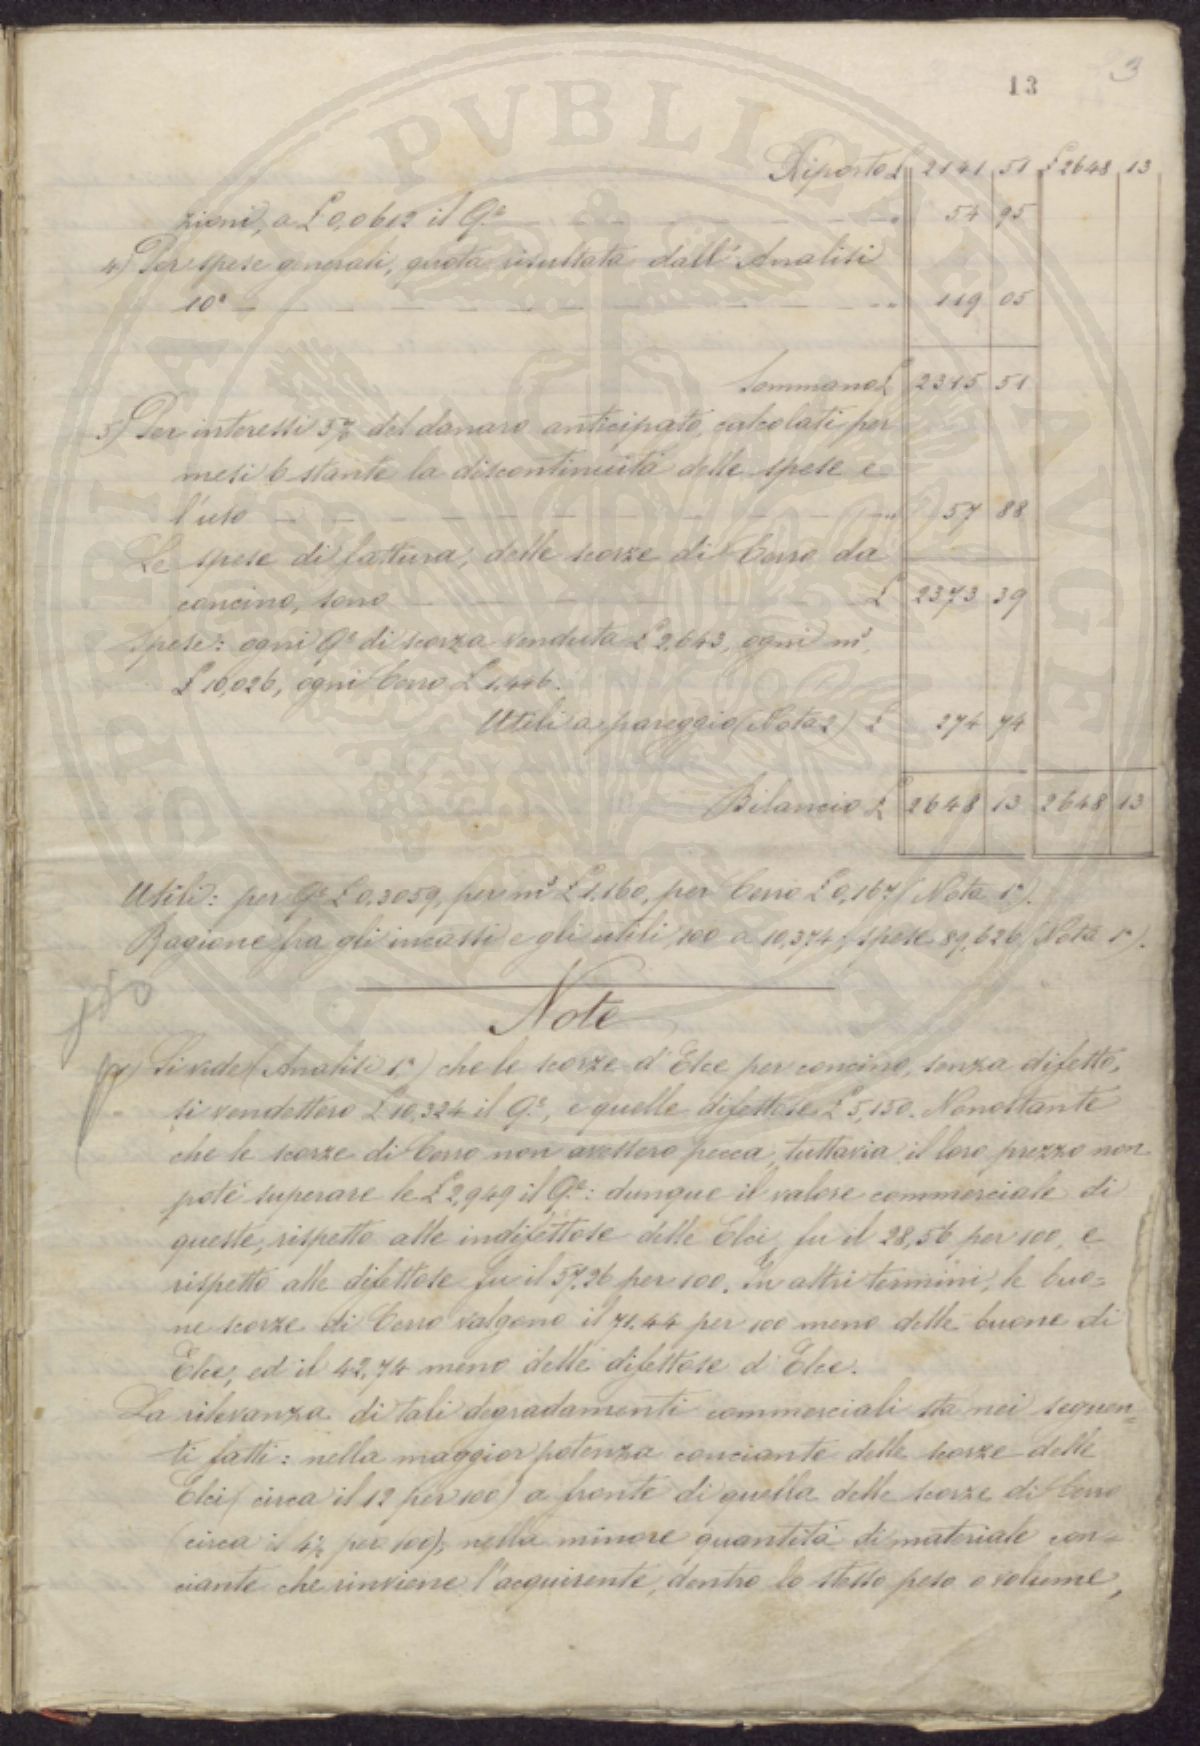 13 3
Riporto £ 2141 51 £ 2648 13
zioni, a £ 0,0612 il Q.e — — — — — " 54 95
4) Per spese generali, quota risultata dall'Analisi
10a — — — — — — — — — " 119 05
Sommano £ 2315 51
5) Per interessi 5% del danaro anticipato, calcolati per
mesi 6 stante la discontinuità delle spese e
l'uso — — — — — — — — — " 57 88
Le spese di fattura, delle scorze di Cerro da
concino, sono — — — — — £ 2373 39
Spese: ogni Q.e di scorza venduta £ 2,643, ogni m3.
£ 10,026, ogni Cerro £ 1,446.
Utili a pareggio (Nota 2) £ 274 74
Bilancio £ 2648 13 2648 13
Utili: per Q.e £ 0,3059, per m3 £ 1,160, per Cerro £ 0,167 (Nota 1a).
Ragione fra gli incassi e gli utili, 100 a 10,374; spese 89,626 (Nota 1a).
Note
Si vede (Analisi 1a) che le scorze d'Elce per concino, senza difetto,
si vendettero £ 10,324 il Q.e, e quelle difettose £ 5,150. Nonostante
che le scorze di Cerro non avessero pecca, tuttavia il loro prezzo non
poté superare le £ 2,949 il Q.e: dunque il valore commerciale di
queste, rispetto alle indifettose delle Elci, fu il 28,56 per 100, e
rispetto alle difettose fu il 57,26 per 100. In altri termini, le buo=
ne scorze di Cerro valgono il 71,44 per 100 meno delle buone di
Elce, ed il 42,74 meno delle difettose d'Elce.
La rilevanza di tali degradamenti commerciali sta nei seguen=
ti fatti: nella maggior potenza conciante delle scorze delle
Elci (circa il 12 per 100) a fronte di quella delle scorze di Cerro
(circa il per 100); nella minore quantità di materiale con=
ciante che rinviene l'acquirente, dentro lo stesso peso o volume,
PVBLICA AVGE PERITA PROSPERITATI